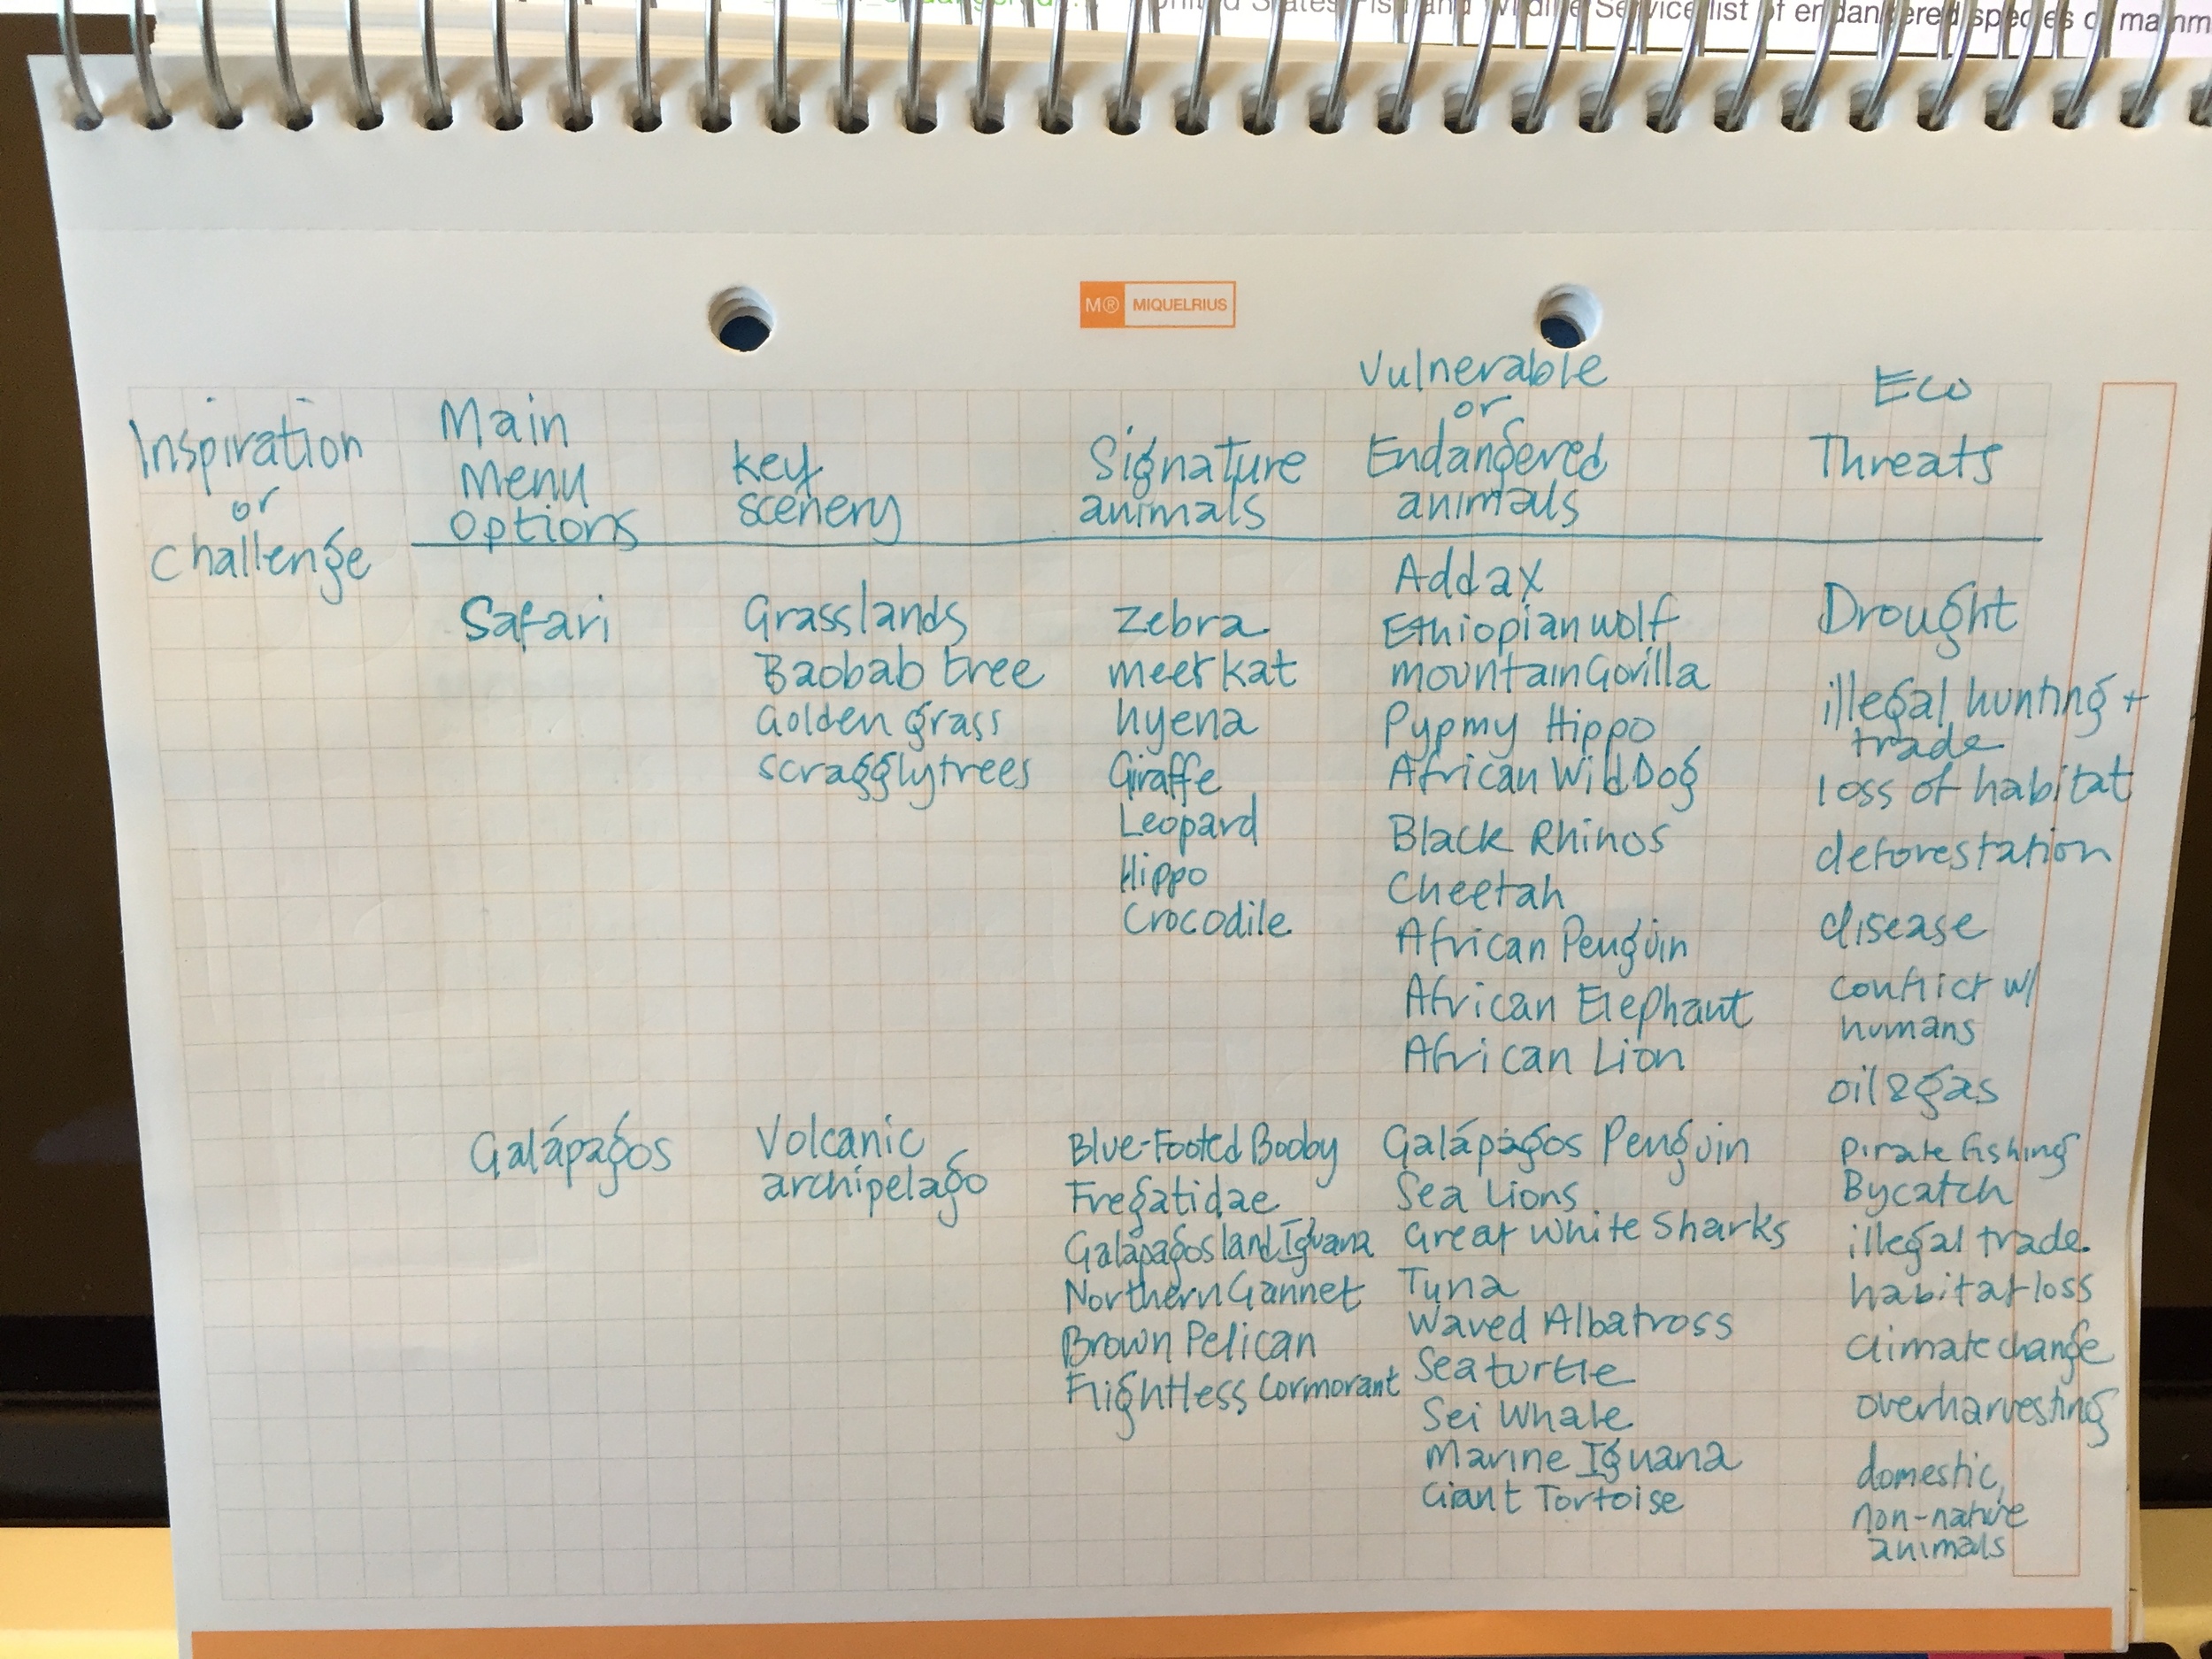 United States Fish and Wildlife Service list of endangered species of mamm
M® MIQUELRIUS
Inspiration
or
Challenge
Main
Menu
options
key
scenery
Signature
animals
Vulnerable
or
Endangered
animals
Eco
Threats
Safari
Grasslands
Baobab tree
Golden grass
scraggly trees
Zebra
meerkat
hyena
Giraffe
Leopard
Hippo
Crocodile
Addax
Ethiopian wolf
mountain Gorilla
Pypmy Hippo
African Wild Dog
Black Rhinos
Cheetah
African Penguin
African Elephant
African Lion
Drought
illegal hunting +
trade
loss of habitat
deforestation
disease
conflict w/
humans
oil & gas
Galápagos
Volcanic
archipelago
Blue-Footed Booby
Fregatidae
Galápagos land Iguana
Northern Gannet
Brown Pelican
Flightless Cormorant
Galápagos Penguin
Sea Lions
Great White Sharks
Tuna
Waved Albatross
Sea turtle
Sei Whale
Marine Iguana
Giant Tortoise
pirate fishing
Bycatch
illegal trade.
habitat loss
climate change
overharvesting
domestic,
non-native
animals